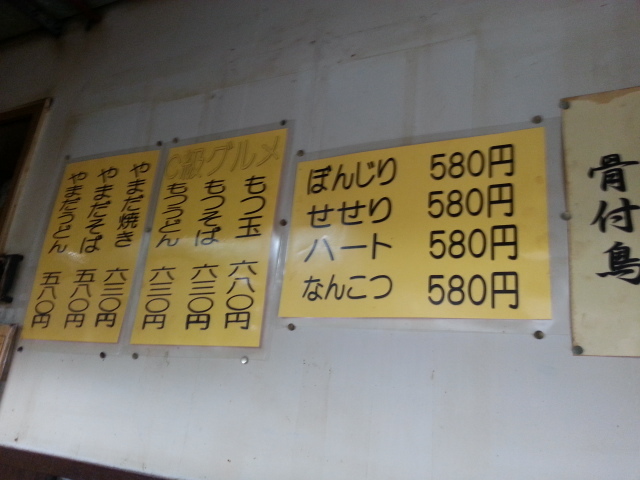 やまだ焼き 六三〇円
やまだそば 五八〇円
やまだうどん 五八〇円
C級グルメ
もつ玉 六八〇円
もつそば 六三〇円
もつうどん 六三〇円
ぼんじり 580円
せせり 580円
ハート 580円
なんこつ 580円
骨付鳥